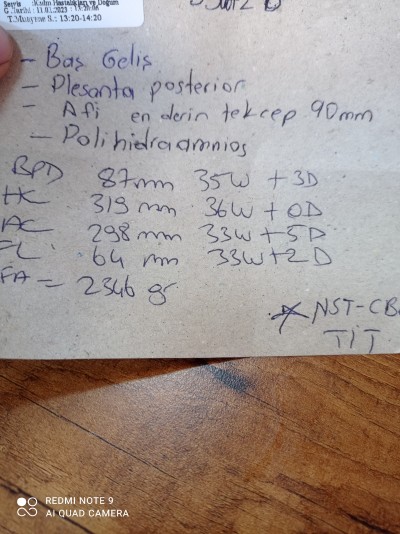 Servis :Kadın Hastalıkları ve Doğum
G.Tarihi : 11.01.2023 13:20:08
T.Muayene S.: 13:20-14:20
- Baş Geliş
- Plesanta posterior
- Afi en derin tek cep 90mm
- Polihidraamnios
BPD 87mm 35W+3D
HC 319 mm 36W+0D
AC 298 mm 33W+5D
FL 64 mm 33W+2D
FA = 2346 gr
NST-CB
TİT
REDMI NOTE 9
AI QUAD CAMERA